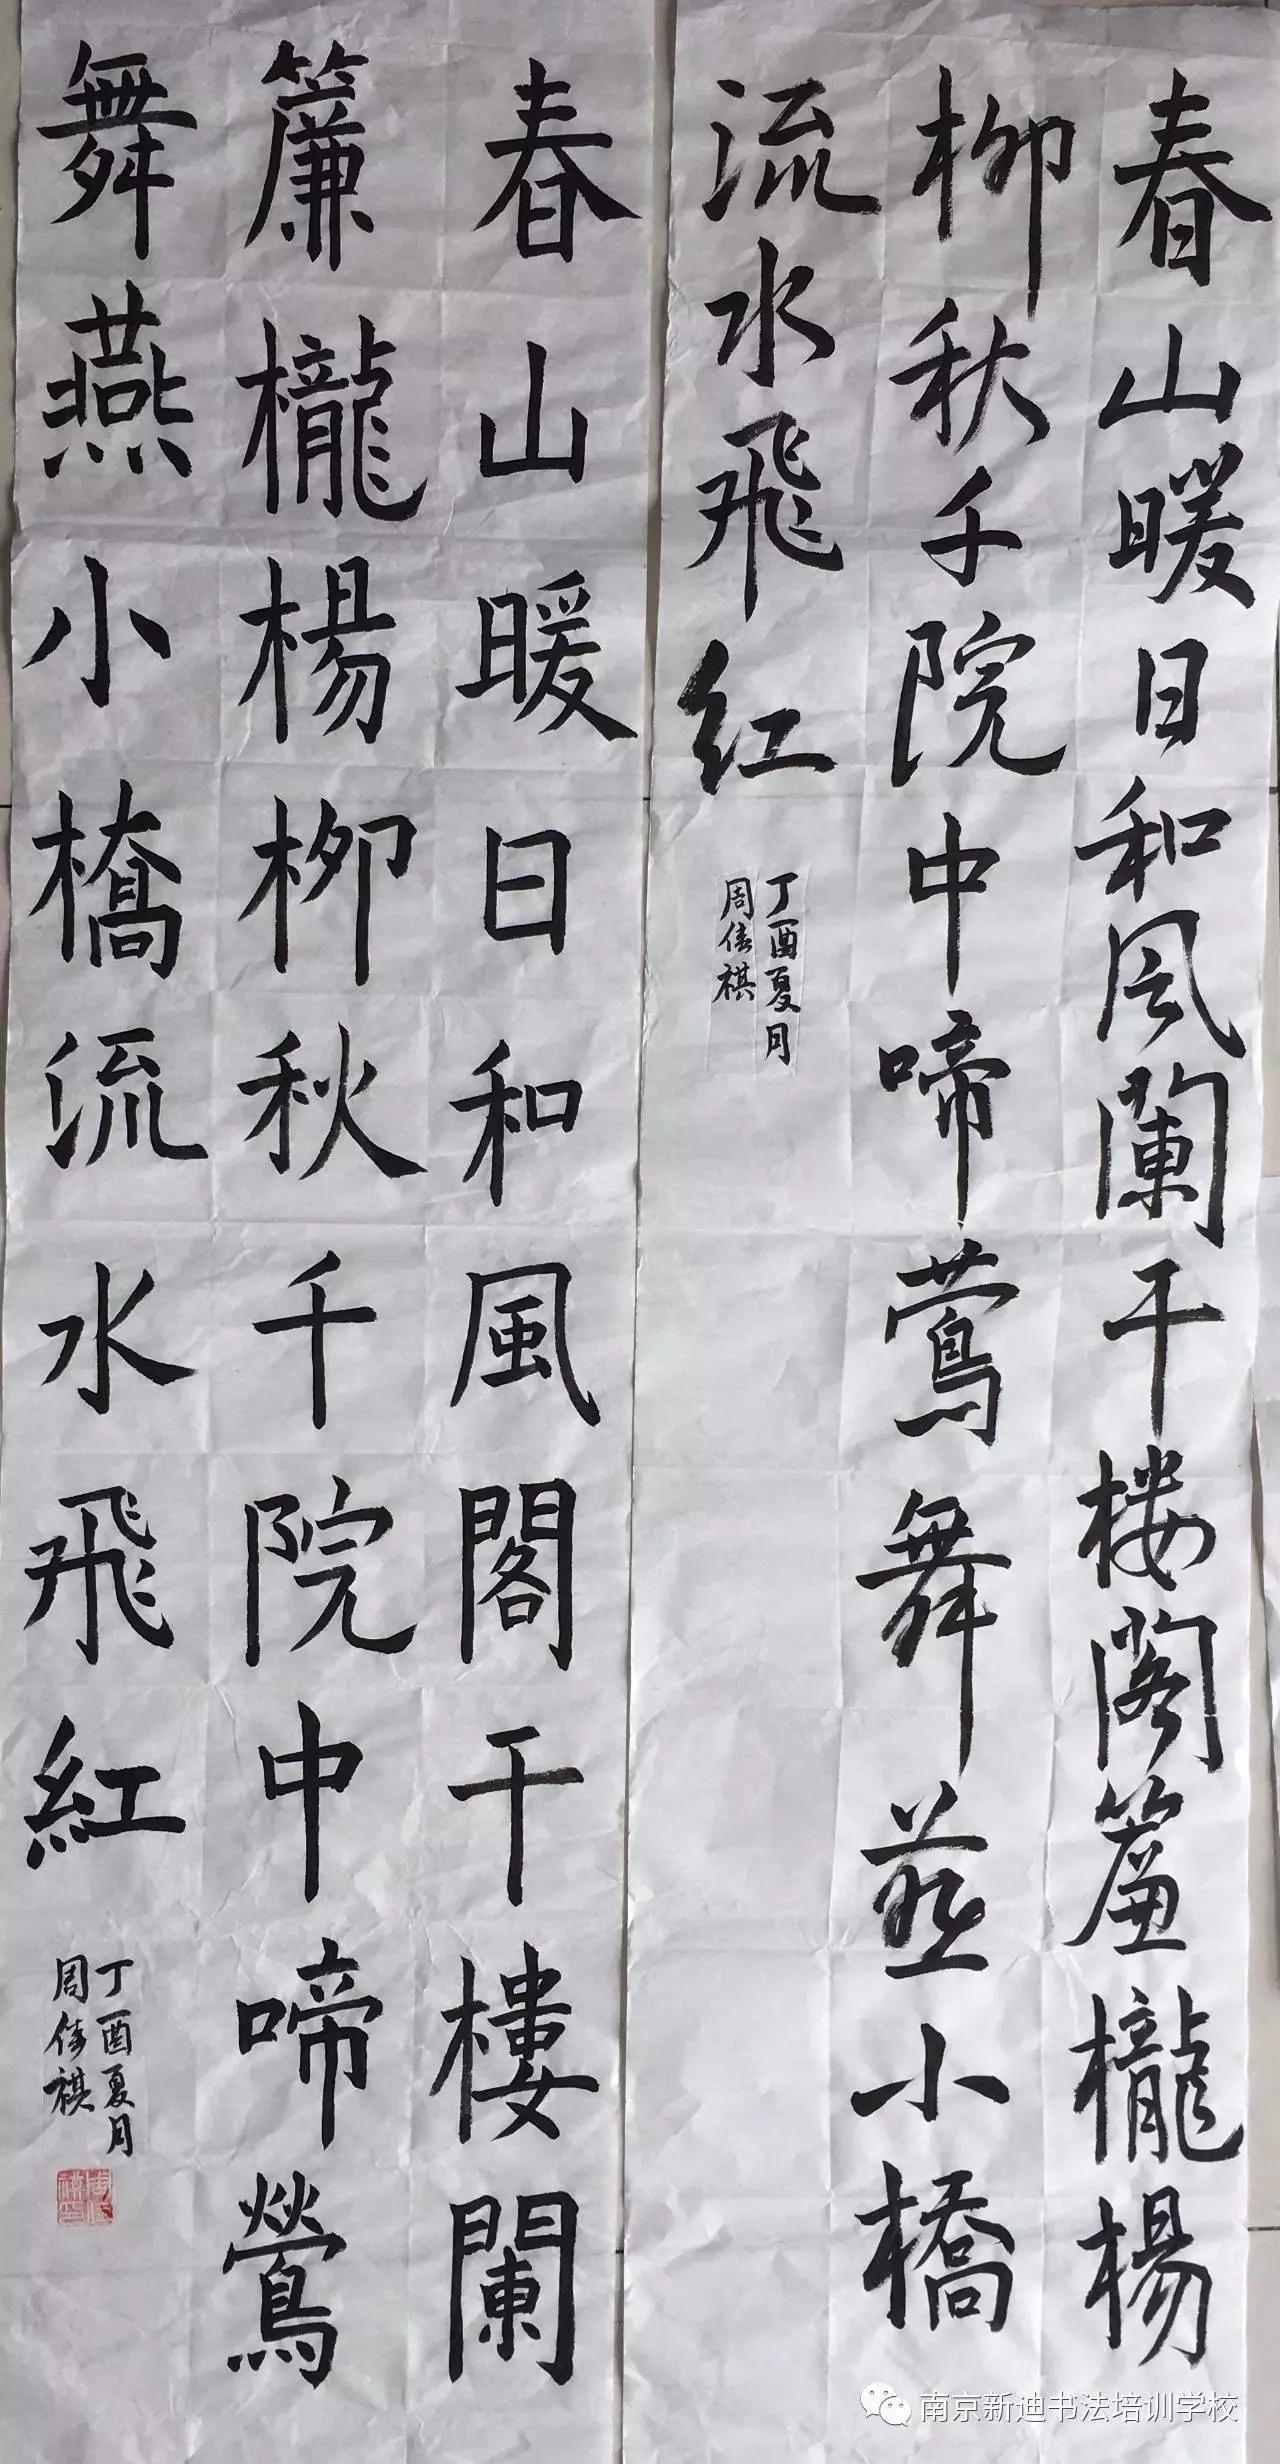 春山暖日和风闌干楼阁簾櫳楊
柳秋千院中啼莺舞燕小橋
流水飛红
丁酉夏月
周佳祺
春山暖日和風閣干樓闌
簾櫳楊柳秋千院中啼鶯
舞燕小橋流水飛紅
丁酉夏月
周佳祺
南京新迪书法培训学校